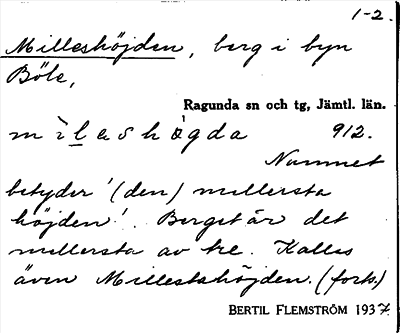 1-2.
Milleshöjden, berg i byn
Böle,
Ragunda sn och tg, Jämtl. län.
mìleshǫ̀gda 912.
Namnet
betyder '(den) mellersta
höjden'. Berget är det
mellersta av tre. Kallas
även Millestahöjden. (forts.)
BERTIL FLEMSTRÖM 1937.